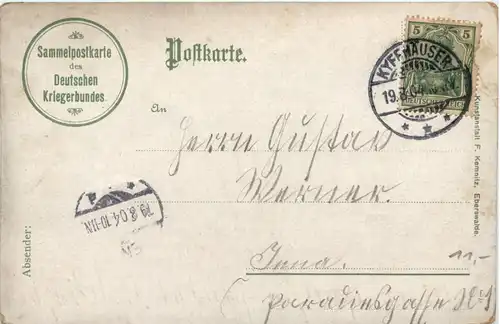 Sammelpostkarte
des
Deutschen
Kriegerbundes.
Postkarte.
5 5
KYFFHÄUSER
19.8.04
DEUTSCHES REICH
Ein
Herrn Gustav
Werner.
Jena.
Paradiesgasse
11,-
19.8.04.10-11N
Absender:
Kunstanstalt F. Kemnitz, Eberswalde.